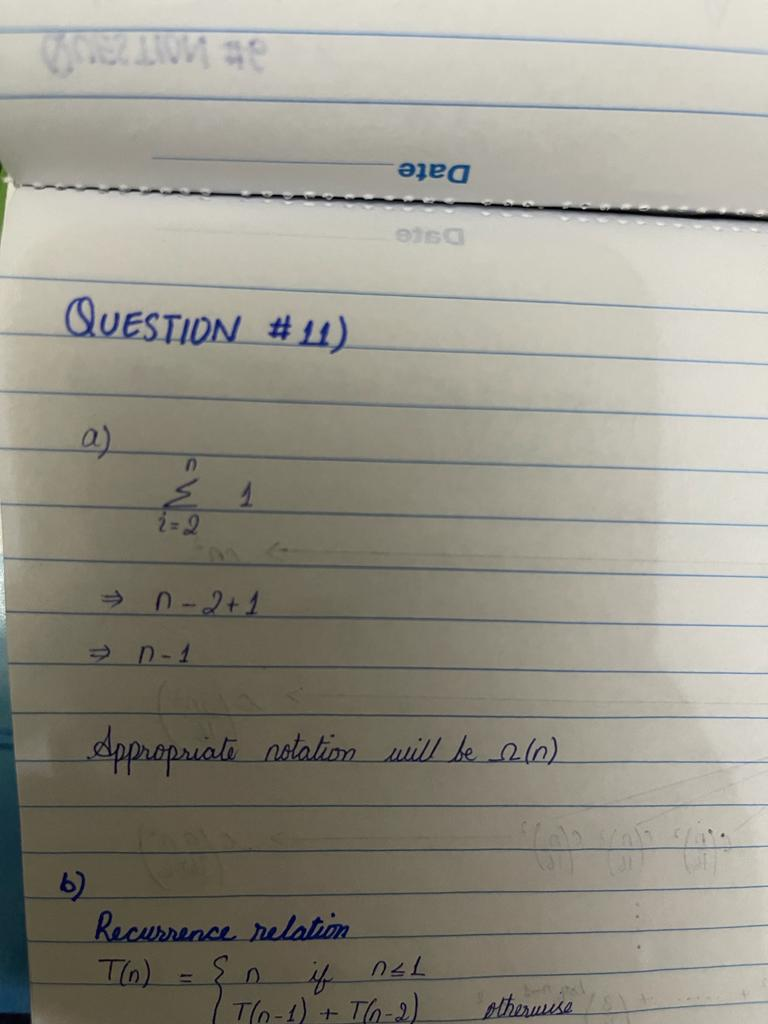 QUESTION #9
Date
Date
QUESTION #11)
a)
n
Σ 1
i=2
⇒ n-2+1
⇒ n-1
Appropriate notation will be Ω(n)
b)
Recurrence relation
T(n) = { n if n≤1
T(n-1) + T(n-2) otherwise